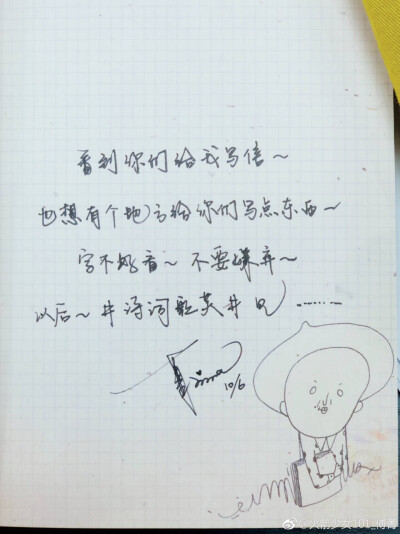 看到你们给我写信~
也想有个地方给你们写点东西~
字不好看~不要嫌弃~
以后~#诗词歌英#见………
10/6